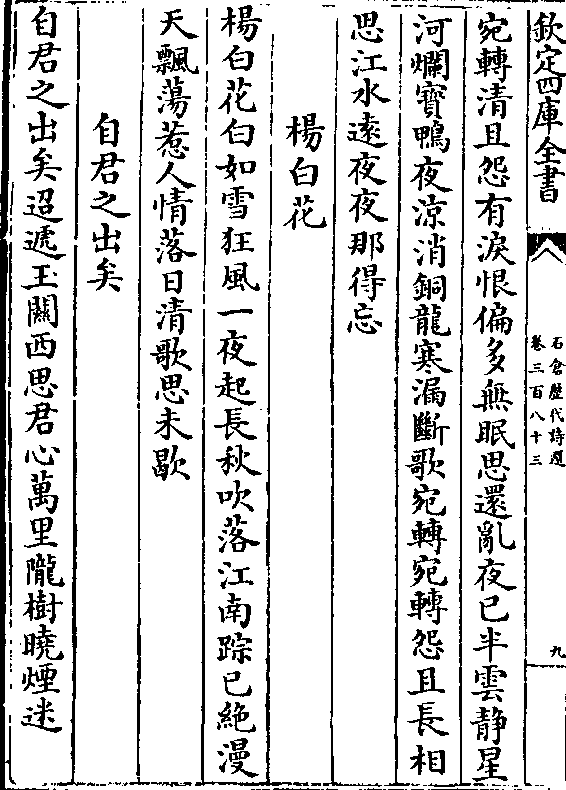 欽定四庫全書
石倉歴代詩選
卷三百八十三
九
宛轉清且怨有淚恨偏多無眠思還亂夜已半雲静星
河爛寳鴨夜涼消銅龍寒漏斷歌宛轉宛轉怨且長相
思江水遠夜夜那得忘
楊白花
楊白花白如雪狂風一夜起長秋吹落江南踪已絶漫
天飄蕩惹人情落日清歌思未歇
自君之出矣
自君之出矣迢遞玉闗西思君心萬里隴樹曉煙迷